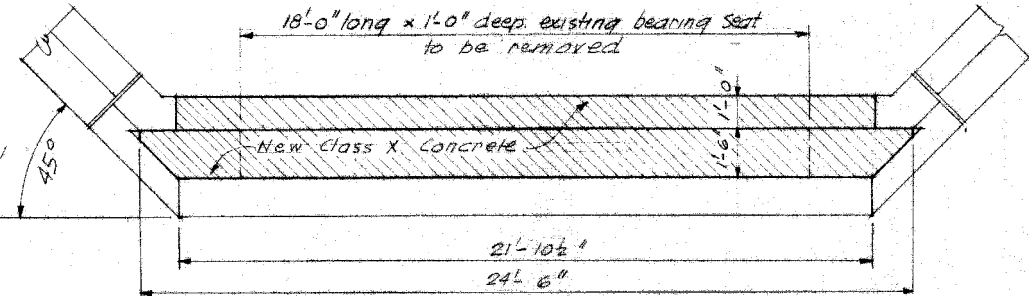 18'-0" long x 1'-0" deep existing bearing seat
to be removed
1'-0"
New Class X Concrete
1'-6"
45°
21'-10½"
24'-6"